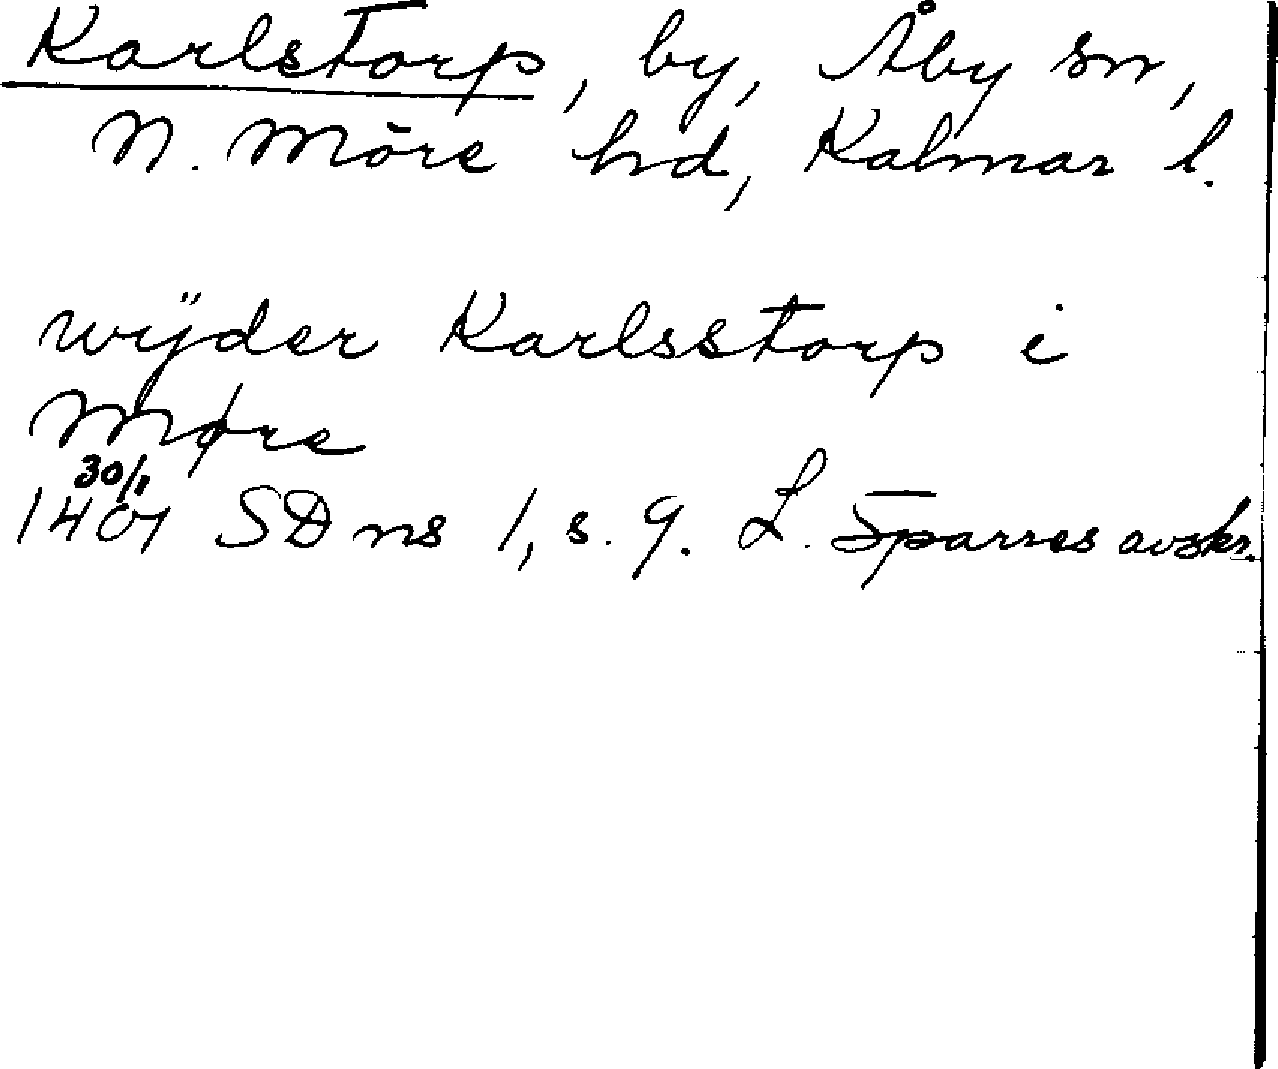 Karlstorp, by, Åby sn,
N. Möre hd, Kalmar l.
wÿder Karlsstorp i
Møre
30/1
1401 SD ns 1, s. 9. L. Sparres avskr.